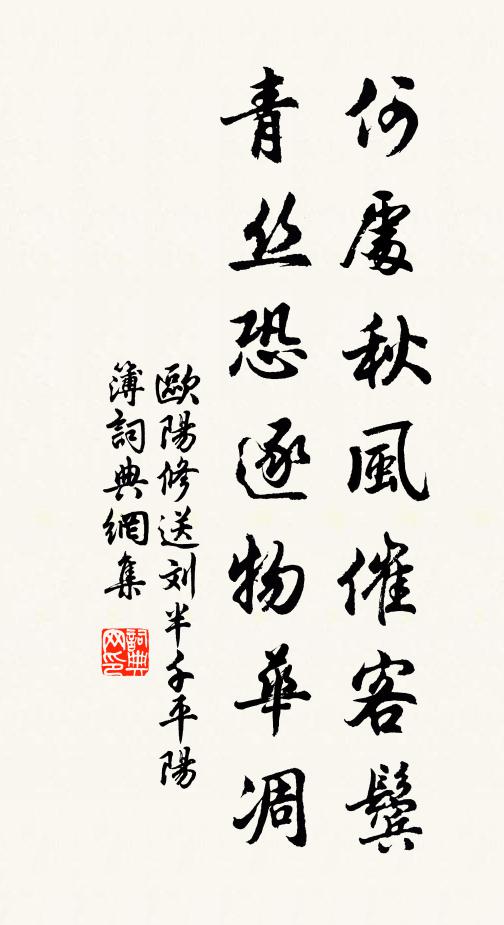 何處秋風催客鬢
青丝恐逐物華凋
歐陽修送刘半千平陽
簿詞典網集
詞典网印